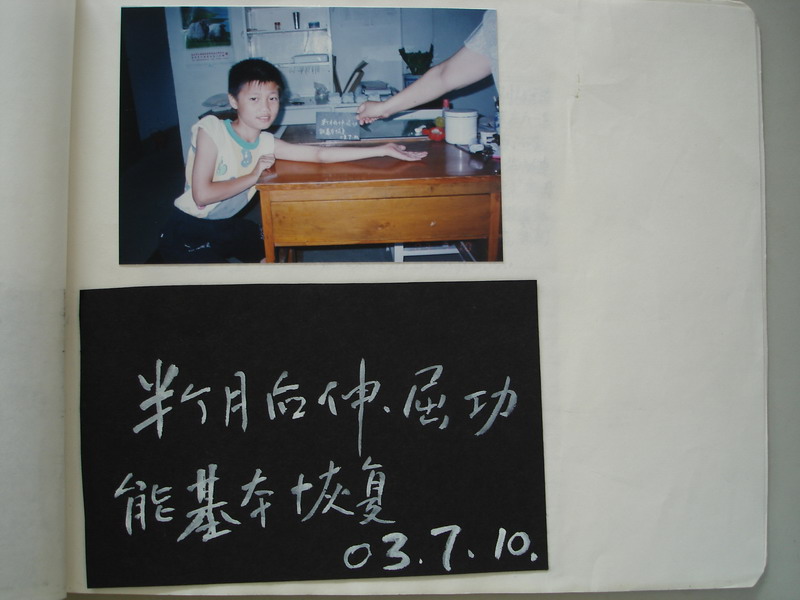 半个月后伸、屈功
能基本恢复
03.7.10.